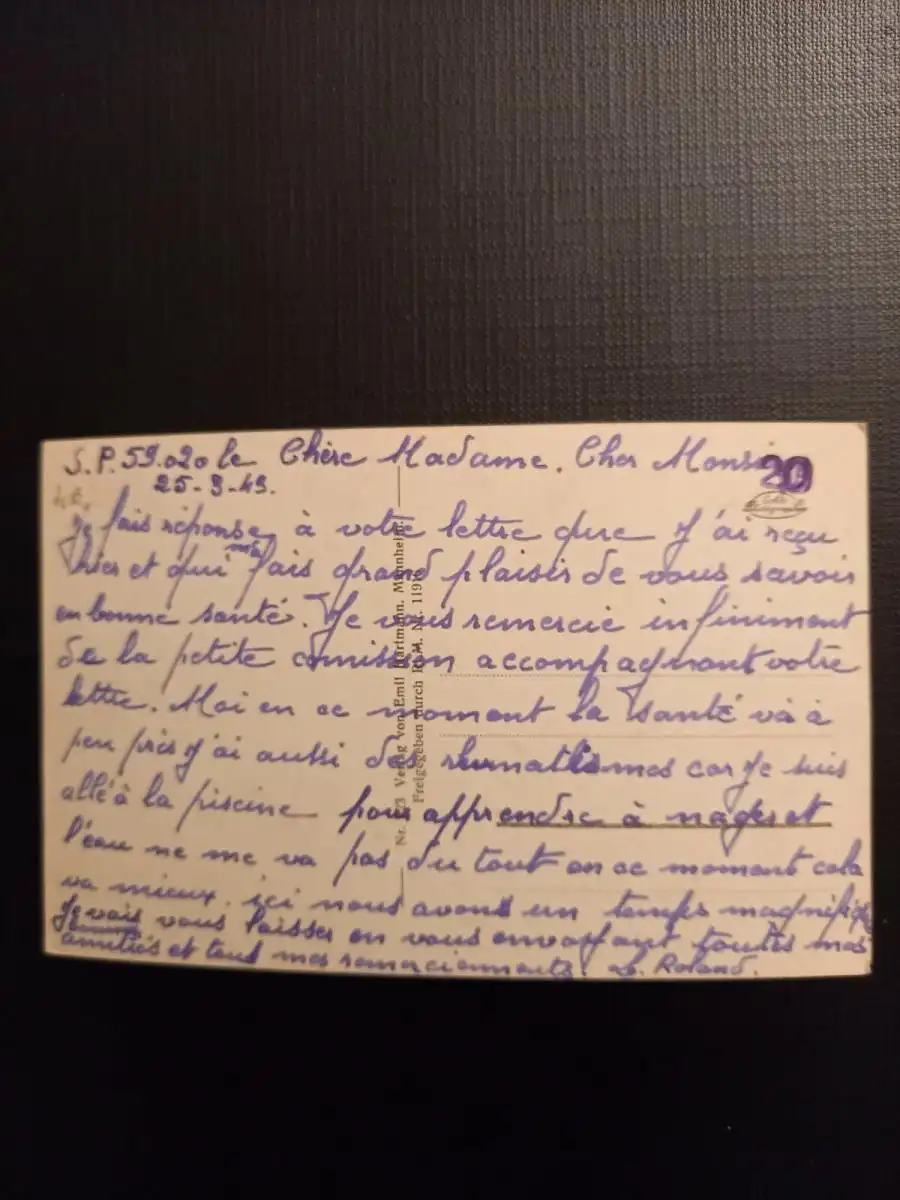 S.P. 59.020 le Chère Madame. Cher Monsi
20
25-9-49.
Je fais réponse à votre lettre que J'ai reçu
hier et qui me fais grand plaisir de vous savoir
en bonne santé. Je vous remercie infiniment
de la petite comission accompagnant votre
lettre. Moi en ce moment la santé va à
peu près J'ai aussi des rhumatismes car Je suis
allé à la piscine pour apprendre à nager et
l'eau ne me va pas du tout en ce moment cela
va mieux. ici nous avons un temps magnifique
Je vais vous laisser en vous envoyant toutes mes
amitiés et tous mes remerciements. Roland.
Nr. Verlag von Emil Hartmann, Mannheim.
Freigegeben durch Nr.